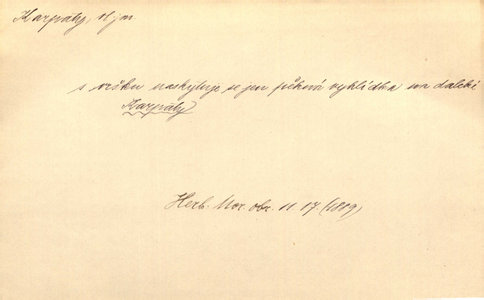 Karpaty, pl. jm.
s vršku naskytuje se jen pěkná vyhlídka na daleké
Karpaty
Herb. Mor. obr. II 17. (1889)